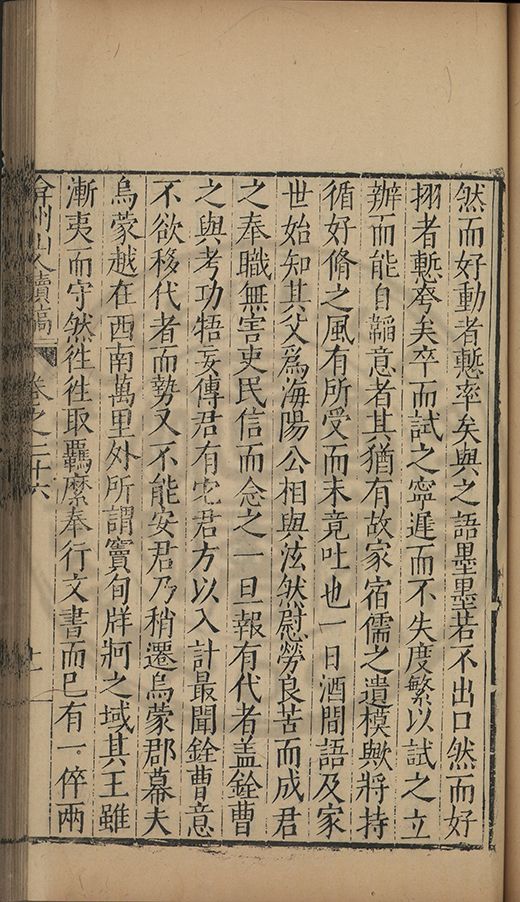 然而好動者慙率矣與之語墨墨若不出口然而好
掤者慙夸矣卒而試之寧遲而不失度繁以試之立
辦而能自韜意者其猶有故家宿儒之遺模歟將持
循好脩之風有所受而未竟吐也一日酒間語及家
世始知其父爲海陽公相與泫然慰勞良苦而成君
之奉職無害吏民信而念之一旦報有代者盖銓曹
之與考功牾妄傳君有它君方以入計最聞銓曹意
不欲移代者而勢又不能安君乃稍遷烏蒙郡幕夫
烏蒙越在西南萬里外所謂竇旬牂牁之域其王雖
漸夷而守然徃徃取羈縻奉行文書而已有一倅兩
弇州山人續稿 卷之二十六 十一